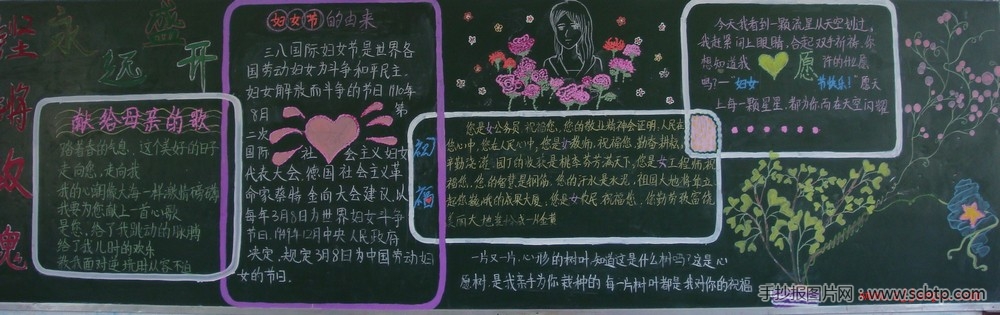 永远盛开
献给母亲的歌
踏着春的气息,这个美好的日子
走向您,走向我
我要为您献上一首心歌
是您,给了我跳动的脉搏
给了我儿时的欢乐
妇女节的由来
三八国际妇女节是世界各
国劳动妇女为斗争和平民主,
妇女解放而斗争的节日.1910年
8月
第
二次
国际
社会主义妇女
代表大会,德国社会主义革
命家蔡特金向大会建议,从
每年3月8日为世界妇女斗争
节日.1949年12月中央人民政府
决定,规定3月8日为中国劳动妇
女的节日。
祝福
您是女公务员,祝福您,您的敬业精神会证明,人民在
您心中,您在人民心中,您是女教师,祝福您,勤奋耕耘,
辛勤浇灌,园丁的收获是桃李芬芳满天下,您是女工程师,祝
福您,您的智慧是钢筋,您的汗水是水泥,祖国大地将耸立
起您巍峨的成果大厦,您是女农民,祝福您,您勤劳致富绕
美丽大地
今天我看到一颗流星从天空划过,
我赶紧闭上眼睛,合起双手祈祷,你
想知道我
愿
许的愿
吗?—"妇女节快乐!"愿天
上每一颗星星,都为你而在天空闪耀
一片又一片心形的树叶知道这是什么树吗?这是心
愿树.是我亲手为你栽种的.每一片树叶都是我对你的祝福
手抄报图片网:www.scbtp.com